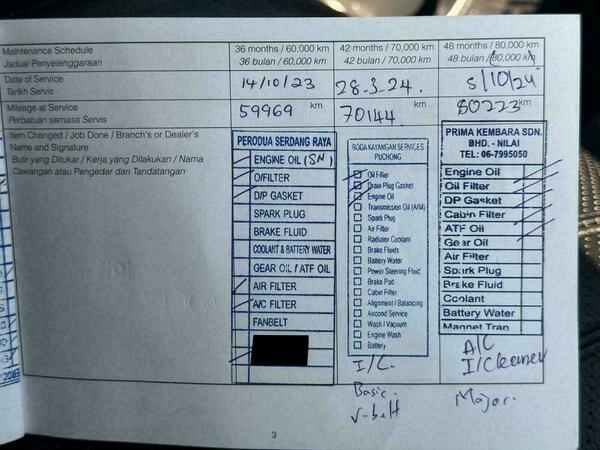 Maintenance Schedule
Jadual Penyelenggaraan
36 months / 60,000 km
36 bulan / 60,000 km
42 months / 70,000 km
42 bulan / 70,000 km
48 months / 80,000 km
48 bulan / 80,000 km
Date of Service
Tarikh Servis
14/10/23
28.3.24.
5/10/24
Mileage at Service
Perbatuan semasa Servis
59969 km
70144 km
80223 km
Item Changed / Job Done / Branch's or Dealer's
Name and Signature
Butir yang Ditukar / Kerja yang Dilakukan / Nama
Cawangan atau Pengedar dan Tandatangan
PERODUA SERDANG RAYA
ENGINE OIL (SN)
O/FILTER
D/P GASKET
SPARK PLUG
BRAKE FLUID
COOLANT & BATTERY WATER
GEAR OIL / ATF OIL
AIR FILTER
A/C FILTER
FANBELT
RODA KAYANGAN SERVICES
PUCHONG
Oil Filter
Drain Plug Gasket
Engine Oil
Transmission Oil (A/M)
Spark Plug
Air Filter
Radiator Coolant
Brake Fluids
Battery Water
Power Steering Fluid
Brake Pad
Cabin Filter
Alignment / Balancing
Aircond Service
Wash / Vacuum
Engine Wash
Battery
I/C.
Basic.
V-belt
PRIMA KEMBARA SDN.
BHD. - NILAI
TEL: 06-7995050
Engine Oil
Oil Filter
DP Gasket
Cabin Filter
ATF Oil
Gear Oil
Air Filter
Spark Plug
Brake Fluid
Coolant
Battery Water
Magnet Tran
A/C
I/Cleaner
Major.
3